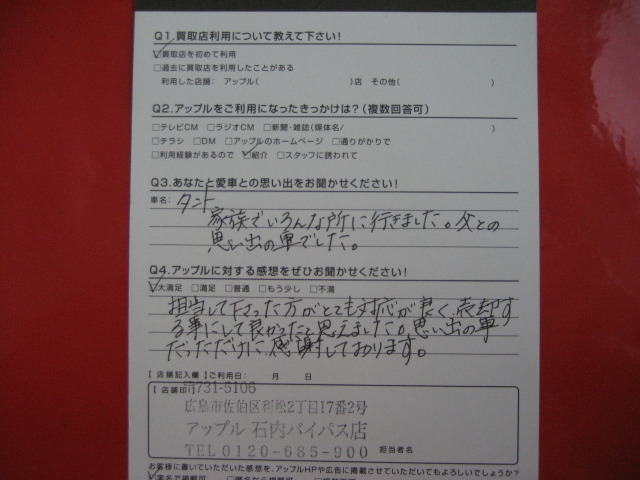 Q1.買取店利用について教えて下さい!
☑買取店を初めて利用
□過去に買取店を利用したことがある
利用した店舗: アップル( )店 その他( )
Q2.アップルをご利用になったきっかけは?(複数回答可)
□テレビCM □ラジオCM □新聞・雑誌(媒体名/ )
□チラシ □DM □アップルのホームページ □通りがかりで
□利用経験があるので ☑紹介 □スタッフに誘われて
Q3.あなたと愛車との思い出をお聞かせください!
車名: タント
家族でいろんな所に行きました。父との
思い出の車でした。
Q4.アップルに対する感想をぜひお聞かせください!
☑大満足 □満足 □普通 □もう少し □不満
担当して下さった方がとても対応が良く、売却す
る事にして良かったと思えました。思い出の車
だっただけに、感謝しております。
【店舗記入欄】ご利用日: 月 日
【店舗印】〒731-5106
広島市佐伯区利松2丁目17番2号
アップル 石内バイパス店
TEL0120-685-900 担当者名
お客様に書いていただいた感想を、アップルHPや広告に掲載させていただいてもよろしいでしょうか?
☑実名で掲載可 □匿名なら掲載可